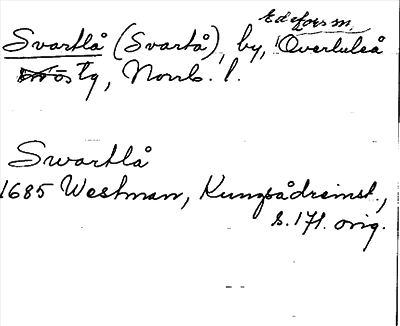 Edefors m.
Svartlå (Svartå), by, Överluleå
östg, Norrb. l.
Swartlå
1685 Westman, Kungsådreinst.,
s. 171. orig.